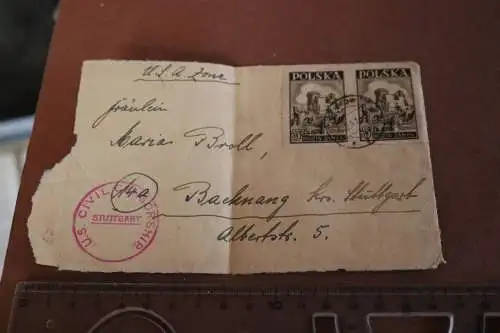 U.S.A. Zone
POLSKA POLSKA
Fräulein
Maria Broll,
(14a) Backnang krs. Stuttgart
Albertstr. 5.
U.S. CIVIL CENSORSHIP
STUTTGART